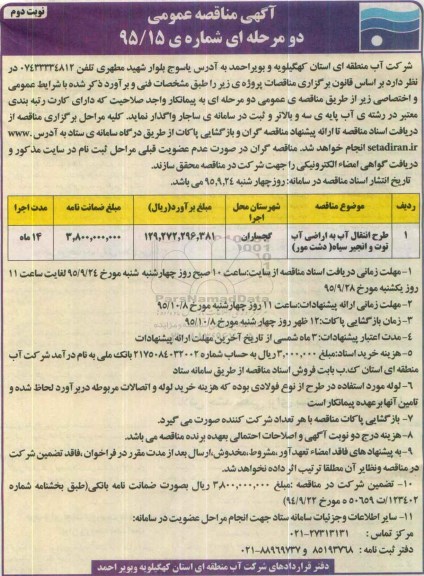 نوبت دوم
آگهی مناقصه عمومی
دو مرحله ای شماره ی ۹۵/۱۵
شرکت آب منطقه ای استان کهگیلویه و بویراحمد به آدرس یاسوج بلوار شهید مطهری تلفن ۰۷۴۳۳۳۳۴۸۱۲ در
نظر دارد بر اساس قانون برگزاری مناقصات پروژه ی زیر را طبق مشخصات فنی و برآورد ذکر شده با شرایط عمومی
و اختصاصی زیر از طریق مناقصه ی عمومی دو مرحله ای به پیمانکار واجد صلاحیت که دارای کارت رتبه بندی
معتبر در رشته ی آب پایه ی سه و بالاتر و ثبت در سامانه ی ساجار واگذار نماید. کلیه مراحل برگزاری مناقصه از
دریافت اسناد مناقصه تا ارائه پیشنهاد مناقصه گران و بازگشایی پاکات از طریق درگاه سامانه ی ستاد به آدرس www.
setadiran.ir انجام خواهد شد. مناقصه گران در صورت عدم عضویت قبلی مراحل ثبت نام در سایت مذکور و
دریافت گواهی امضاء الکترونیکی را جهت شرکت در مناقصه محقق سازند.
تاریخ انتشار اسناد مناقصه در سامانه: روز چهار شنبه ۹۵,۹,۲۴ می باشد.
ردیف موضوع مناقصه شهرستان محل اجرا مبلغ برآورد(ریال) مبلغ ضمانت نامه مدت اجرا
۱ طرح انتقال آب به اراضی آب توت و انجیر سیاه( دشت مور) گچساران ۱۲۹,۲۷۲,۲۹۶,۳۸۱ ۳,۸۰۰,۰۰۰,۰۰۰ ۱۴ ماه
۱- مهلت زمانی دریافت اسناد مناقصه از سایت: ساعت ۱۰ صبح روز چهارشنبه شنبه مورخ ۹۵/۹/۲۴ لغایت ساعت ۱۱
روز یکشنبه مورخ ۹۵/۹/۲۸
۲- مهلت زمانی ارائه پیشنهادات: ساعت ۱۱ روز چهارشنبه مورخ ۹۵/۱۰/۸
۳- زمان بازگشایی پاکات: ۱۲ ظهر روز چهار شنبه مورخ ۹۵/۱۰/۸
۴- مدت اعتبار پیشنهادات: ۳ ماه شمسی از تاریخ آخرین مهلت ارائه پیشنهادات
۵- هزینه خرید اسناد: مبلغ ۳,۰۰۰,۰۰۰ ریال به حساب شماره ۲۱۷۵۰۸۴۰۳۲۰۰۲ بانک ملی به نام درآمد شرکت آب
منطقه ای استان ک.ب بابت فروش اسناد مناقصه از طریق سامانه ستاد
۶- لوله مورد استفاده در طرح از نوع فولادی بوده که هزینه خرید لوله و اتصالات مربوطه دربرآورد لحاظ شده و
تامین آنها بر عهده پیمانکار است
۷- بازگشایی پاکات مناقصه با هر تعداد شرکت کننده صورت می گیرد.
۸- هزینه درج دو نوبت آگهی و اصلاحات احتمالی بعهده برنده مناقصه می باشد.
۹- به پیشنهاد های فاقد امضاء تعهدآور، مشروط، مخدوش، ارسال بعد از مدت مقرر در فراخوان، فاقد تضمین شرکت
در مناقصه و نظایر آن مطلقا ترتیب اثر داده نخواهد شد.
۱۰- تضمین شرکت در مناقصه :مبلغ ۳,۸۰۰,۰۰۰,۰۰۰ ریال بصورت ضمانت نامه بانکی(طبق بخشنامه شماره
۱۲۳۴۰۲/ت ۵۰۶۵۹ ه مورخ ۹۴/۹/۲۲)
۱۱- سایر اطلاعات و جزئیات سامانه ستاد جهت انجام مراحل عضویت در سامانه:
مرکز تماس : ۲۷۳۱۳۱۳۱-۰۲۱
دفتر ثبت نامه : ۸۵۱۹۳۷۶۸ و ۸۸۹۶۹۷۳۷-۰۲۱
دفتر قراردادهای شرکت آب منطقه ای استان کهگیلویه وبویر احمد